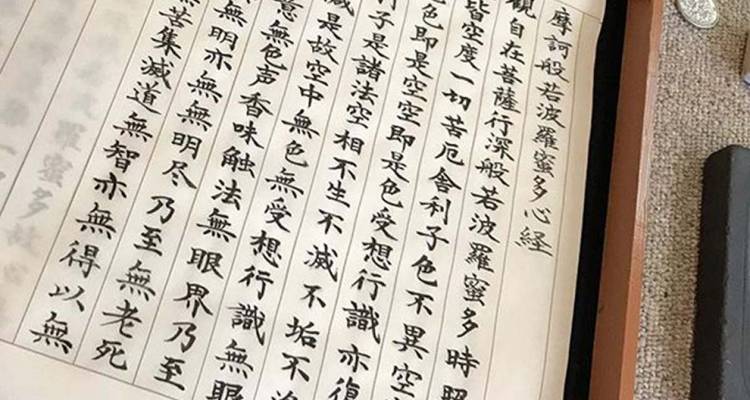 摩訶般若波羅蜜多心経
觀自在菩薩行深般若波羅蜜多時照
皆空度一切苦厄舎利子色不異空
色即是空空即是色受想行識亦復
利子是諸法空相不生不滅不垢不
減是故空中無色無受想行識無眼
意無色声香味触法無眼界乃至
無明亦無無明尽乃至無老死
無苦集滅道無智亦無得以無
羅蜜多故